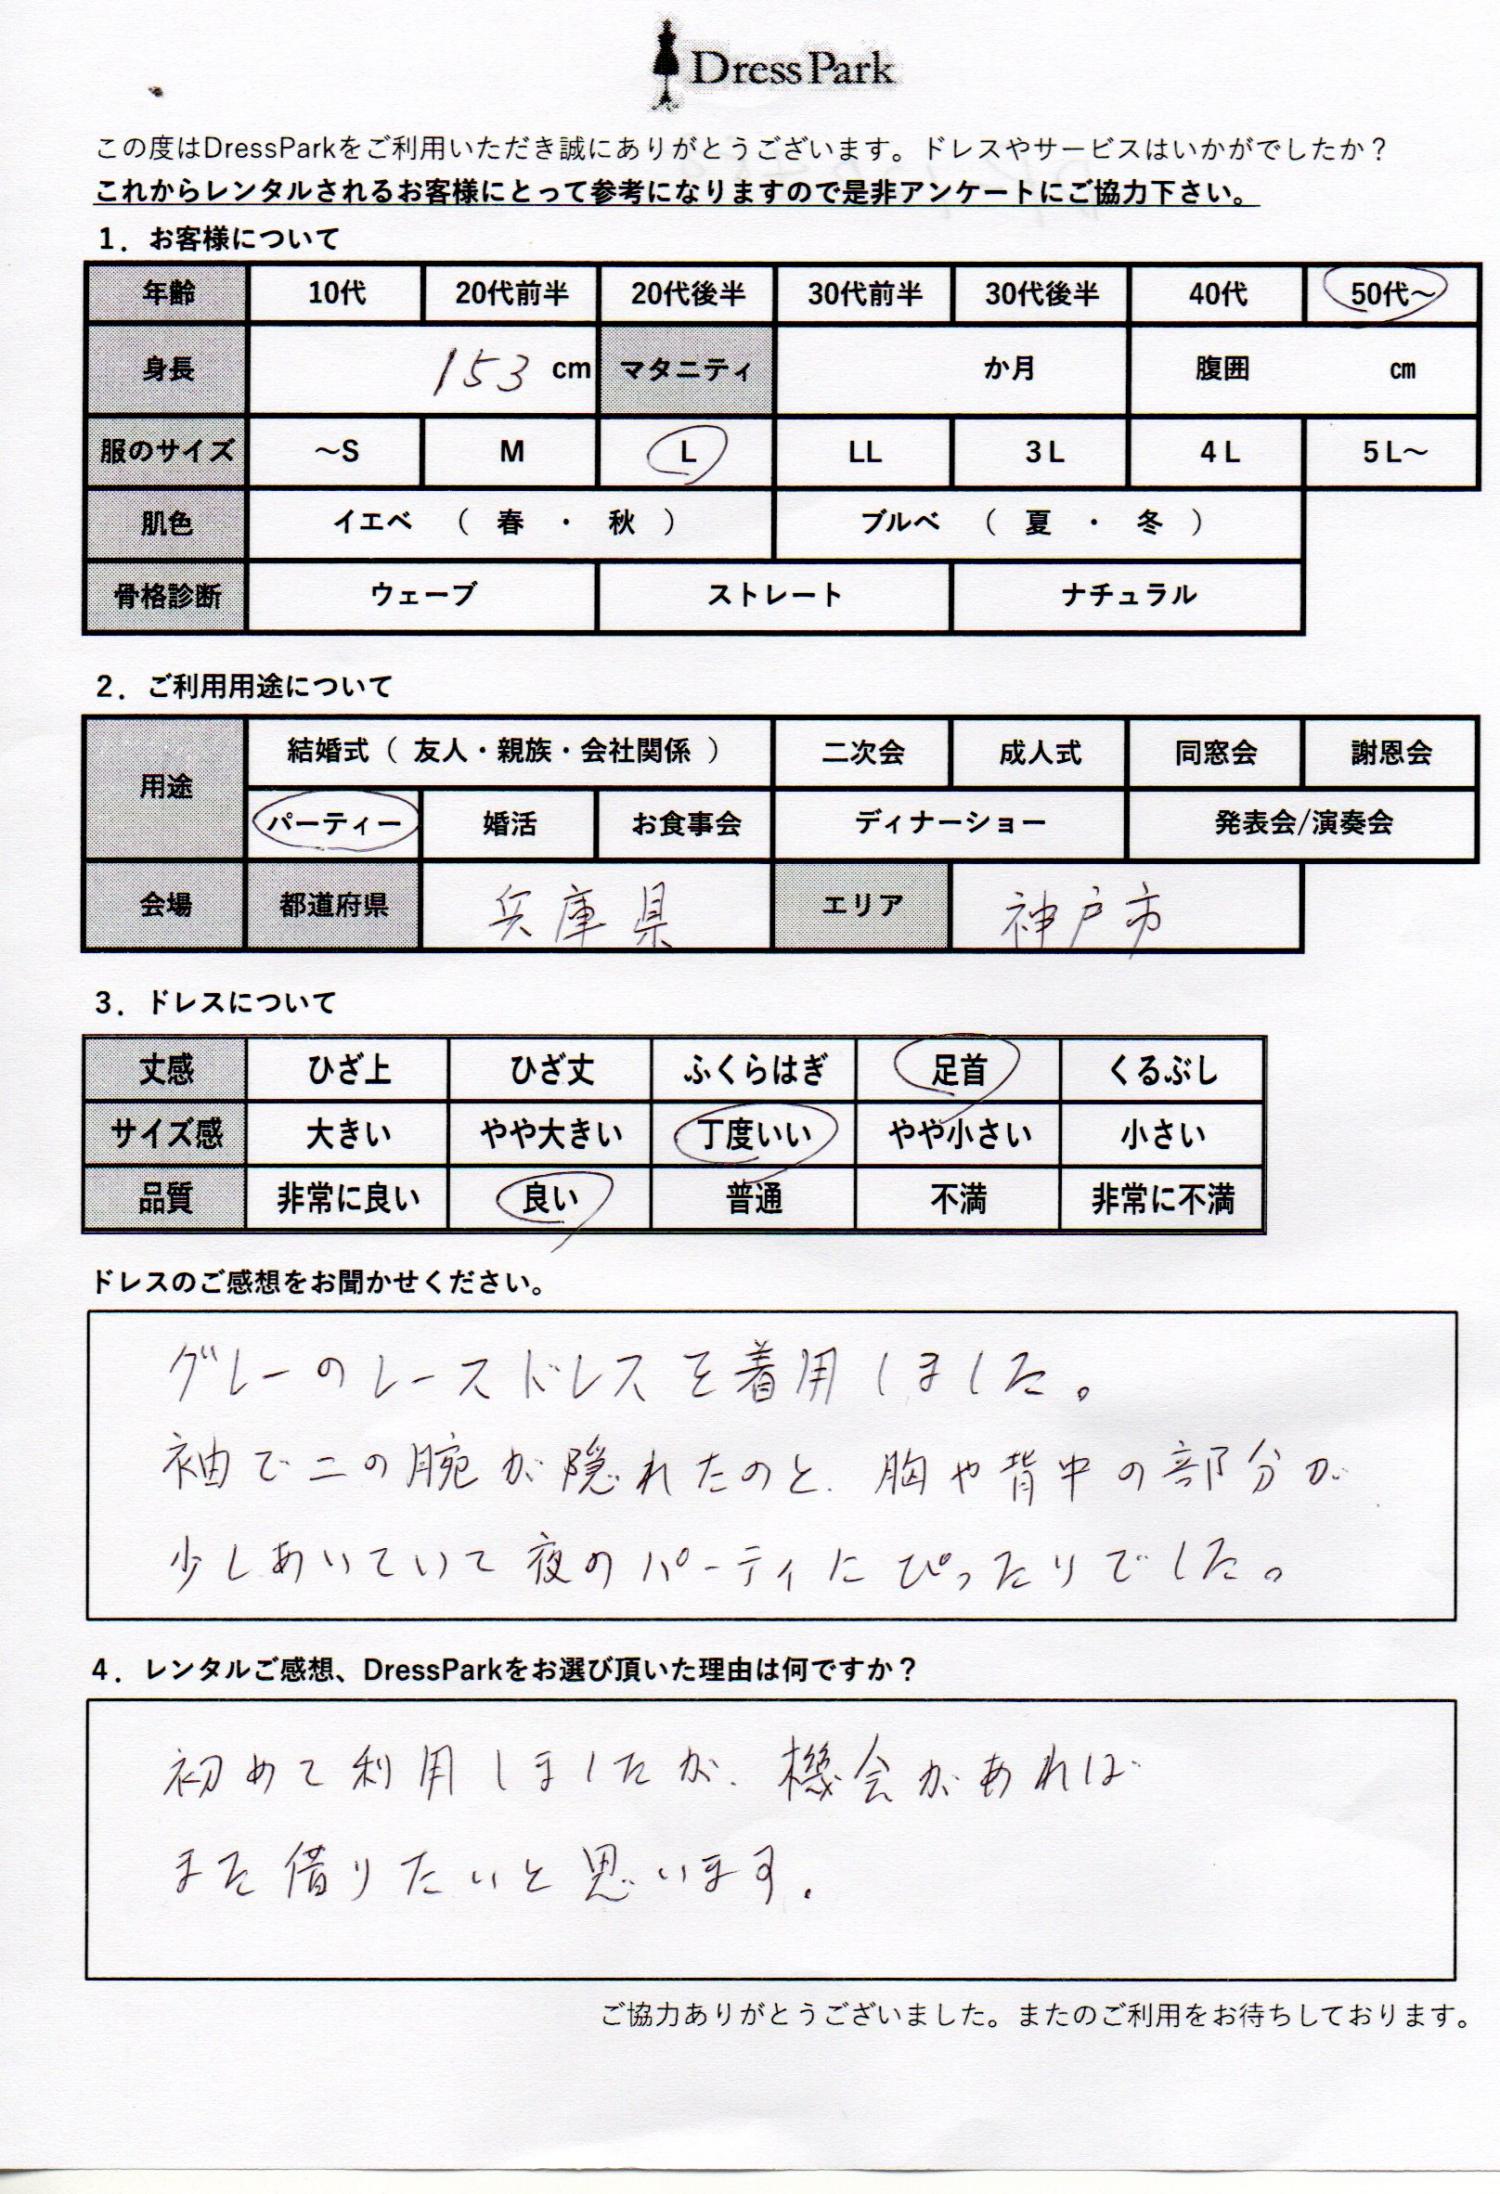 DressPark
この度はDressParkをご利用いただき誠にありがとうございます。ドレスやサービスはいかがでしたか？
これからレンタルされるお客様にとって参考になりますので是非アンケートにご協力下さい。
1．お客様について
年齢 10代 20代前半 20代後半 30代前半 30代後半 40代 50代～
身長 153 cm マタニティ か月 腹囲 ㎝
服のサイズ ～S M L LL 3L 4L 5L～
肌色 イエベ （ 春 ・ 秋 ） ブルベ （ 夏 ・ 冬 ）
骨格診断 ウェーブ ストレート ナチュラル
2．ご利用用途について
用途 結婚式（ 友人・親族・会社関係 ） 二次会 成人式 同窓会 謝恩会
パーティー 婚活 お食事会 ディナーショー 発表会/演奏会
会場 都道府県 兵庫県 エリア 神戸市
3．ドレスについて
丈感 ひざ上 ひざ丈 ふくらはぎ 足首 くるぶし
サイズ感 大きい やや大きい 丁度いい やや小さい 小さい
品質 非常に良い 良い 普通 不満 非常に不満
ドレスのご感想をお聞かせください。
グレーのレースドレスを着用しました。
袖で二の腕が隠れたのと、胸や背中の部分が
少しあいていて夜のパーティにぴったりでした。
4．レンタルご感想、DressParkをお選び頂いた理由は何ですか？
初めて利用しましたが、機会があれば
また借りたいと思います。
ご協力ありがとうございました。またのご利用をお待ちしております。